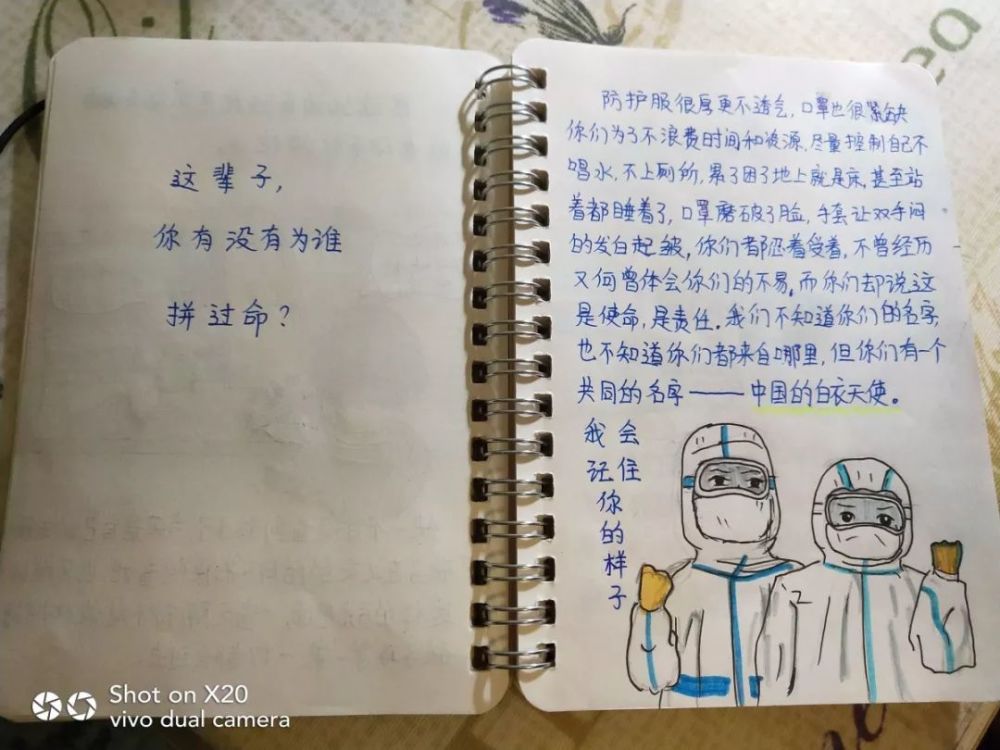 这辈子,
你有没有为谁
拼过命?
防护服很厚更不透气,口罩也很紧缺
你们为了不浪费时间和资源,尽量控制自己不
喝水,不上厕所,累了困了地上就是床,甚至站
着都睡着了,口罩磨破了脸,手套让双手闷
的发白起皱,你们都忍着受着,不曾经历
又何曾体会你们的不易。而你们却说这
是使命,是责任。我们不知道你们的名字,
也不知道你们都来自哪里,但你们有一个
共同的名字——中国的白衣天使。
我会
记住
你
的
样
子
Shot on X20
vivo dual camera